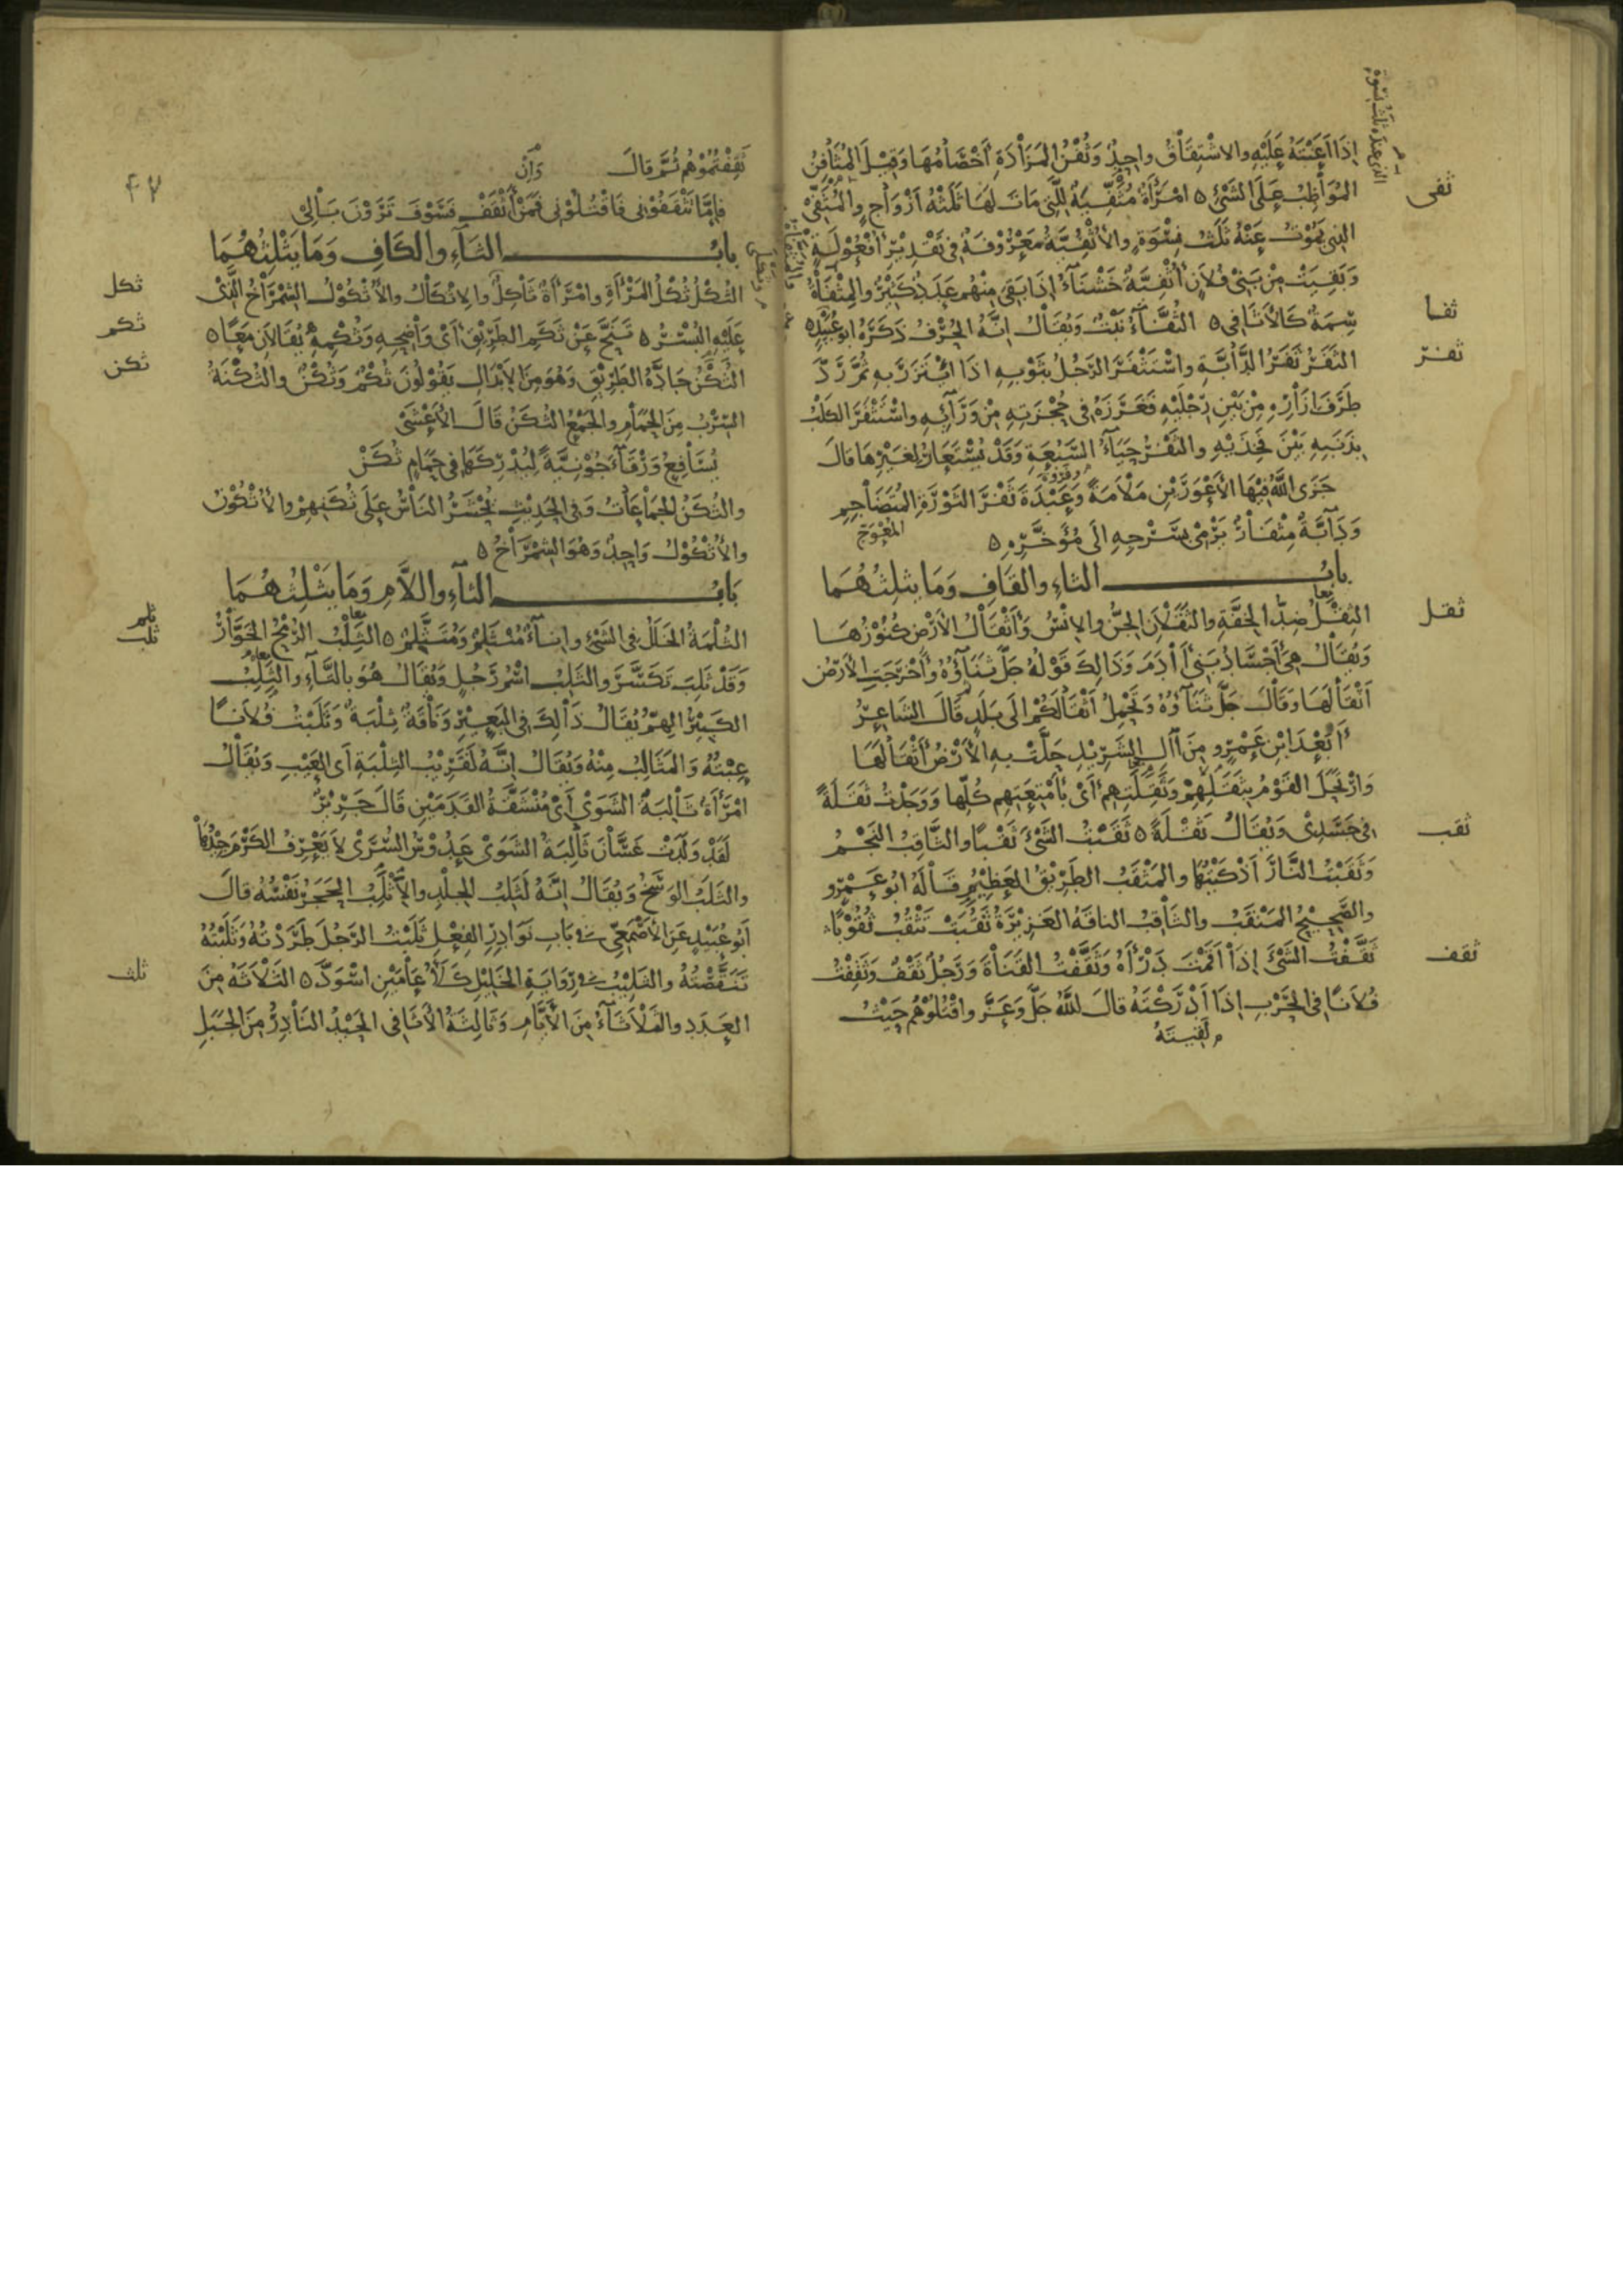 إذا أعنته عليه والاشتقاق واحد وثفن المزادة أخصامها وقيل المثافن
ثفى
المواظب على الشئ ٥ امرأة مثفية للتى مات لها ثلثة أزواج والمثفى
الذى يموت عنه ثلث نسوة والأثفية معروفة فى تقدير أفعولة
وبقيت من بنى فلان أثفية خشناء إذا بقى منهم عدد كثير والمثفاة
ثفا
سمة كالأثافى ٥ الثفاء نبت ويقال انه الحرف ذكره ابو عبيد ٥
ثفر
الثفر ثفر الدابة واستثفر الرجل بثوبه اذا ائتزر به ثم رد
طرف ازاره من بين رجليه فغرزه فى حجزته من ورائه واستثفر الكلب
بذنبه بين فخذيه والثفر حياء السبعة وقد يستعار لغيرها قال
جزى الله فيها الأعورين ملامة وعبدة ثفر الثورة المتضاجم
وفروة
المعوج
ودابة مثفار يرمى بسرجه الى مؤخره ٥
باب الثاء والقاف وما يثلثهما
ثقل
الثقل ضد الخفة والثقلان الجن والانس وأثقال الأرض كنوزها
ويقال هى أجساد بنى أادم وذالك قوله جل ثناؤه وأخرجت الأرض
أثقالها وقال جل ثناؤه وتحمل أثقالكم الى بلد قال الشاعر
أبعد ابن عمرو من آال الشريد حلت به الأرض أثقالها
وارتحل القوم بثقلهم وثقلتهم أى بأمتعتهم كلها ووجدت ثقلة
ثقب
فى جسدى ويقال ثقلة ٥ ثقبت الشئ ثقبا والثاقب النجم
وثقبت النار أذكيتها والمثقب الطريق العظيم قاله ابو عمرو
والصحيح المنقب والثاقب الناقة الغزيرة ثقبت تثقب ثقوبا
ثقف
ثقفت الشئ إذا أقمت درأه وثقفت القناة ورجل ثقف وثقفت
فلانا فى الحرب إذا أدركته قال الله جل وعز واقتلوهم حيث
لقيته
٤٧
ثقفتموهم ثم قال وإن
فإما تثقفونى فاقتلونى فمن أثقف فسوف ترون بالى
باب الثاء والكاف وما يثلثهما
ثكل
الثكل ثكل المرأة وامرأة ثاكل والاثكال والأثكول الشمراخ الذى
ثكم
عليه البسر ٥ تنح عن ثكم الطريق أى واضحه وثكمه يقالان معا ٥
ثكن
الثكن جادة الطريق وهو من الابدال يقولون ثكم وثكن والثكنة
السرب من الحمام والجمع الثكن قال الأعشى
يسافع ورقاء جونية ليدركها فى حمام ثكن
والثكن الجماعات وفى الحديث يحشر الناس على ثكنهم والأثكون
والأثكول واحد وهو الشمراخ ٥
باب الثاء واللام وما يثلثهما
ثلم
ثلب
الثلمة الخلل فى الشئ وإناء منثلم ومتثلم ٥ الثلب الرمح الخوار
وقد ثلب تكسر والثلب اسم رجل ويقال هو بالتاء والثلب
الكبير الهم يقال ذالك فى البعير وناقة ثلبة وثلبت فلانا
عبته والمثالب منه ويقال انه لقريب الثلبة أى العيب ويقال
امرأة ثالبة الشوى أى منشقة القدمين قال جرير
لقد ولدت غسان ثالبة الشوى عدوس السرى لا يعرف الكرم جيدها
والثلب الوسخ ويقال إنه لثلب الجلد والأثلب الحجر نفسه قال
أبو عبيد عن الأصمعى فى باب نوادر الفعل ثلبت الرجل طردته وثلبته
ثلث
تنقصته والثليب فى رواية الخليل كلأ عامين اسود ٥ الثلاثة من
العدد والثلاثاء من الأيام وثالثة الأثافى الحيد النادر من الجبل